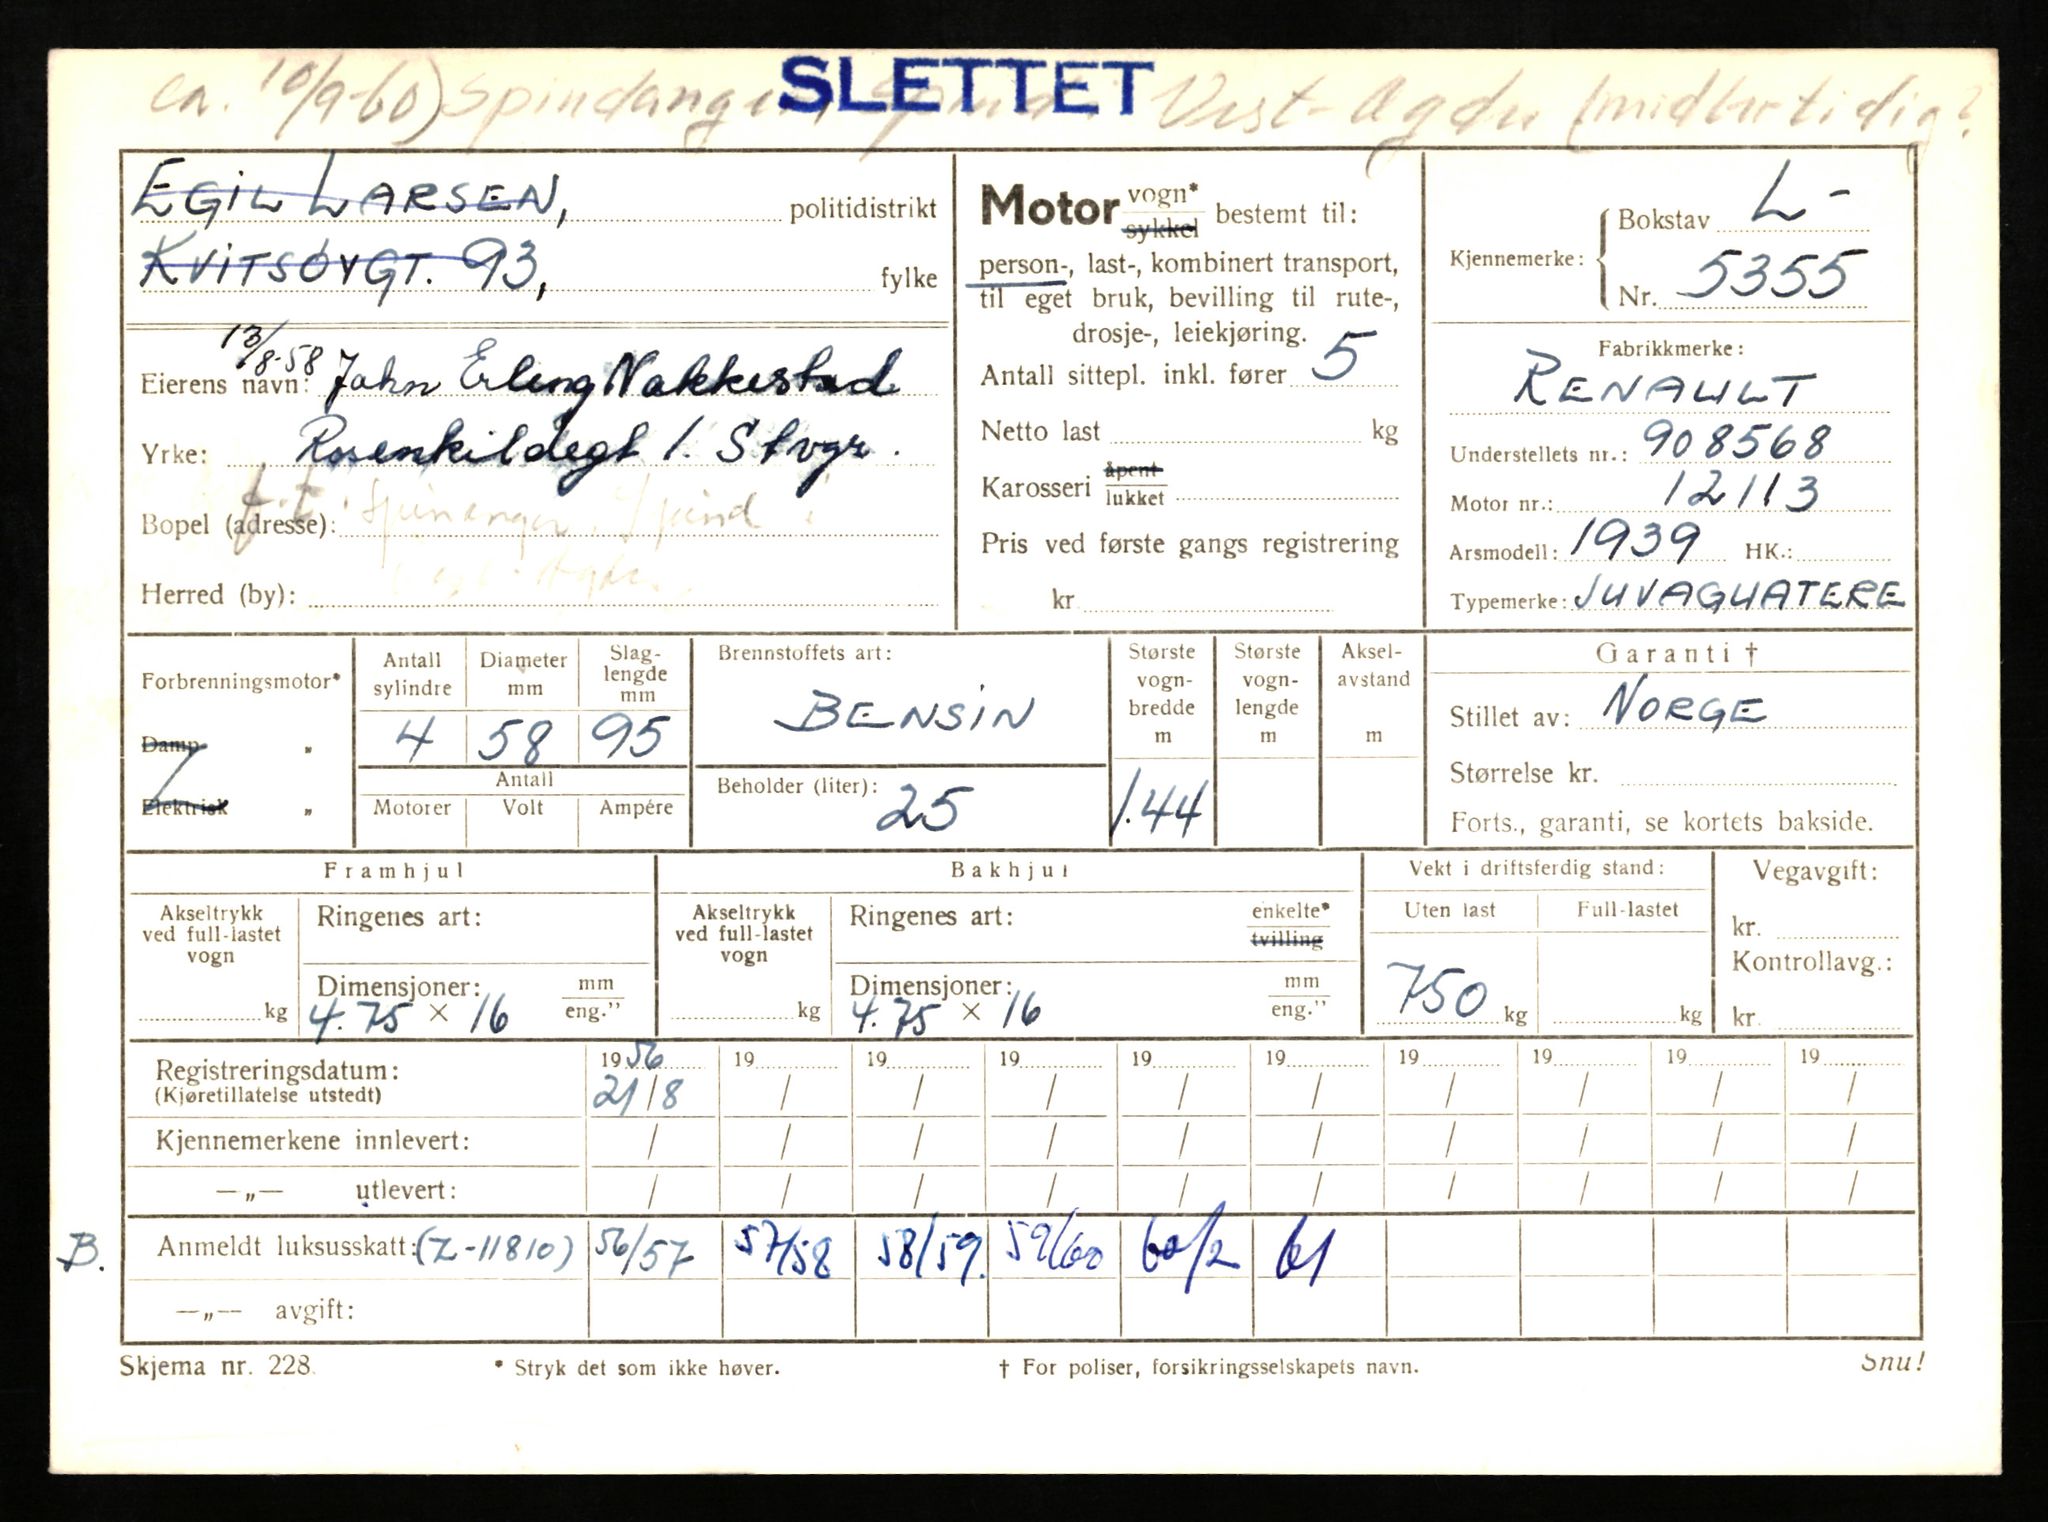 SLETTET
ca. 10/9-60) Vest-Agder (midlertidig?
EGIL LARSEN, politidistrikt
KVITSØYGT. 93, fylke
13/8-58
Eierens navn: John Erling Nakkestad
Yrke: Rosenkildegt 1. Stvgr.
Bopel (adresse):
Herred (by):
Motor vogn* sykkel bestemt til:
person-, last-, kombinert transport,
til eget bruk, bevilling til rute-,
drosje-, leiekjøring.
Antall sittepl. inkl. fører 5
Netto last kg
Karosseri åpent lukket
Pris ved første gangs registrering
kr
Kjennemerke: Bokstav L-
Nr. 5355
Fabrikkmerke:
RENAULT
Understellets nr.: 908568
Motor nr.: 12113
Arsmodell: 1939 HK.:
Typemerke: JUVAGUATERE
Forbrenningsmotor*
Damp "
Elektrisk "
Antall sylindre Diameter mm Slag-lengde mm
4 58 95
Antall
Motorer Volt Ampére
Brennstoffets art:
BENSIN
Beholder (liter):
25
Største vogn-bredde m
1.44
Største vogn-lengde m
Aksel-avstand m
Garanti †
Stillet av: NORGE
Størrelse kr.
Forts., garanti, se kortets bakside.
Framhjul
Akseltrykk ved full-lastet vogn
kg
Ringenes art:
Dimensjoner: mm eng."
4.75 × 16
Bakhjul
Akseltrykk ved full-lastet vogn
kg
Ringenes art: enkelte* tvilling
Dimensjoner: mm eng."
4.75 × 16
Vekt i driftsferdig stand:
Uten last Full-lastet
750 kg kg
Vegavgift:
kr.
Kontrollavg.:
kr.
Registreringsdatum: 1956 19 19 19 19 19 19 19 19 19
(Kjøretillatelse utstedt) 21/8 / / / / / / / / /
Kjennemerkene innlevert: / / / / / / / / / /
—„— utlevert: / / / / / / / / / /
B. Anmeldt luksusskatt: (Z-11810) 56/57 57/58 58/59. 59/60 60/2 61
—„— avgift:
Skjema nr. 228. * Stryk det som ikke høver. † For poliser, forsikringsselskapets navn. Snu!